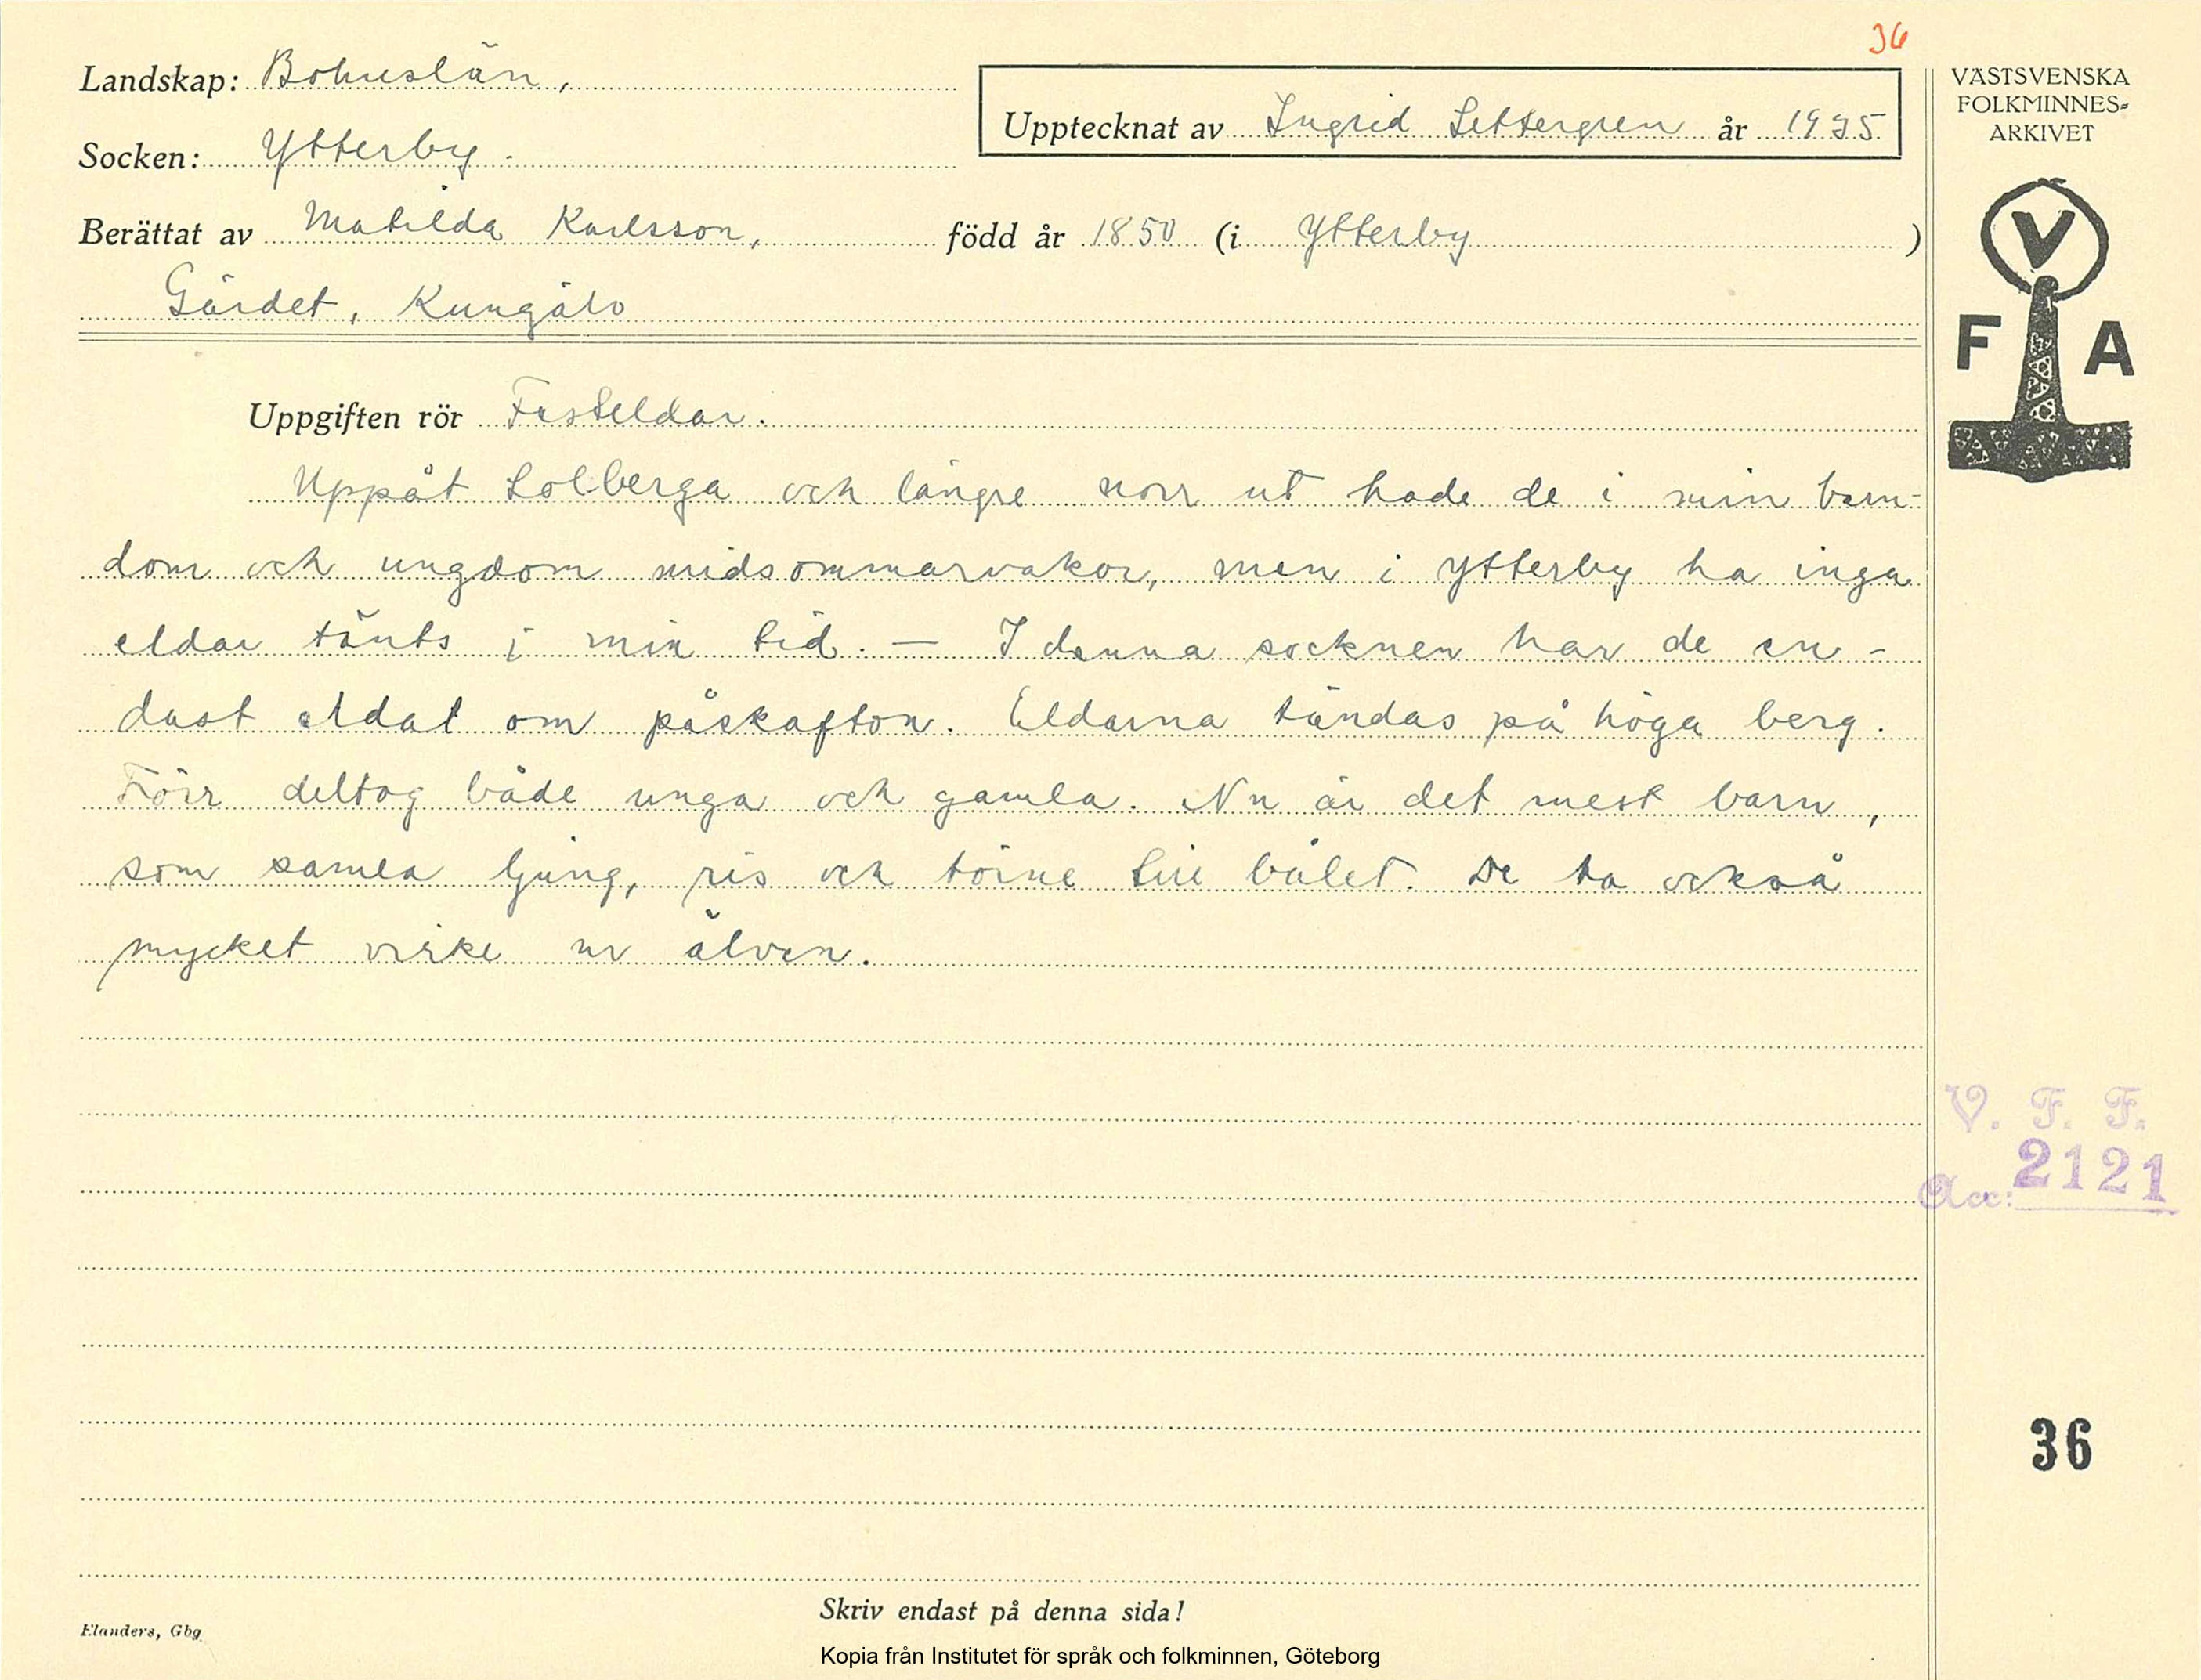 36
Landskap: Bohuslän,
Socken: Ytterby.
Upptecknat av Ingrid Settergren år 1935
Berättat av Matilda Karlsson, född år 1850 (i Ytterby )
Gärdet, Kungälv
Uppgiften rör Festeldar.
Uppåt Solberga och längre norr ut hade de i min barn-
dom och ungdom midsommarvakor, men i Ytterby ha inga
eldar tänts i min tid. — I denna socknen har de en-
dast eldat om påskafton. Eldarna tändas på höga berg.
Förr deltog både unga och gamla. Nu är det mest barn,
som samla ljung, ris och törne till bålet. De ta också
mycket virke ur älven.
VÄSTSVENSKA
FOLKMINNES-
ARKIVET
V
F A
V. F. F.
Acc: 2121
36
Skriv endast på denna sida!
Elanders, Gbg
Kopia från Institutet för språk och folkminnen, Göteborg